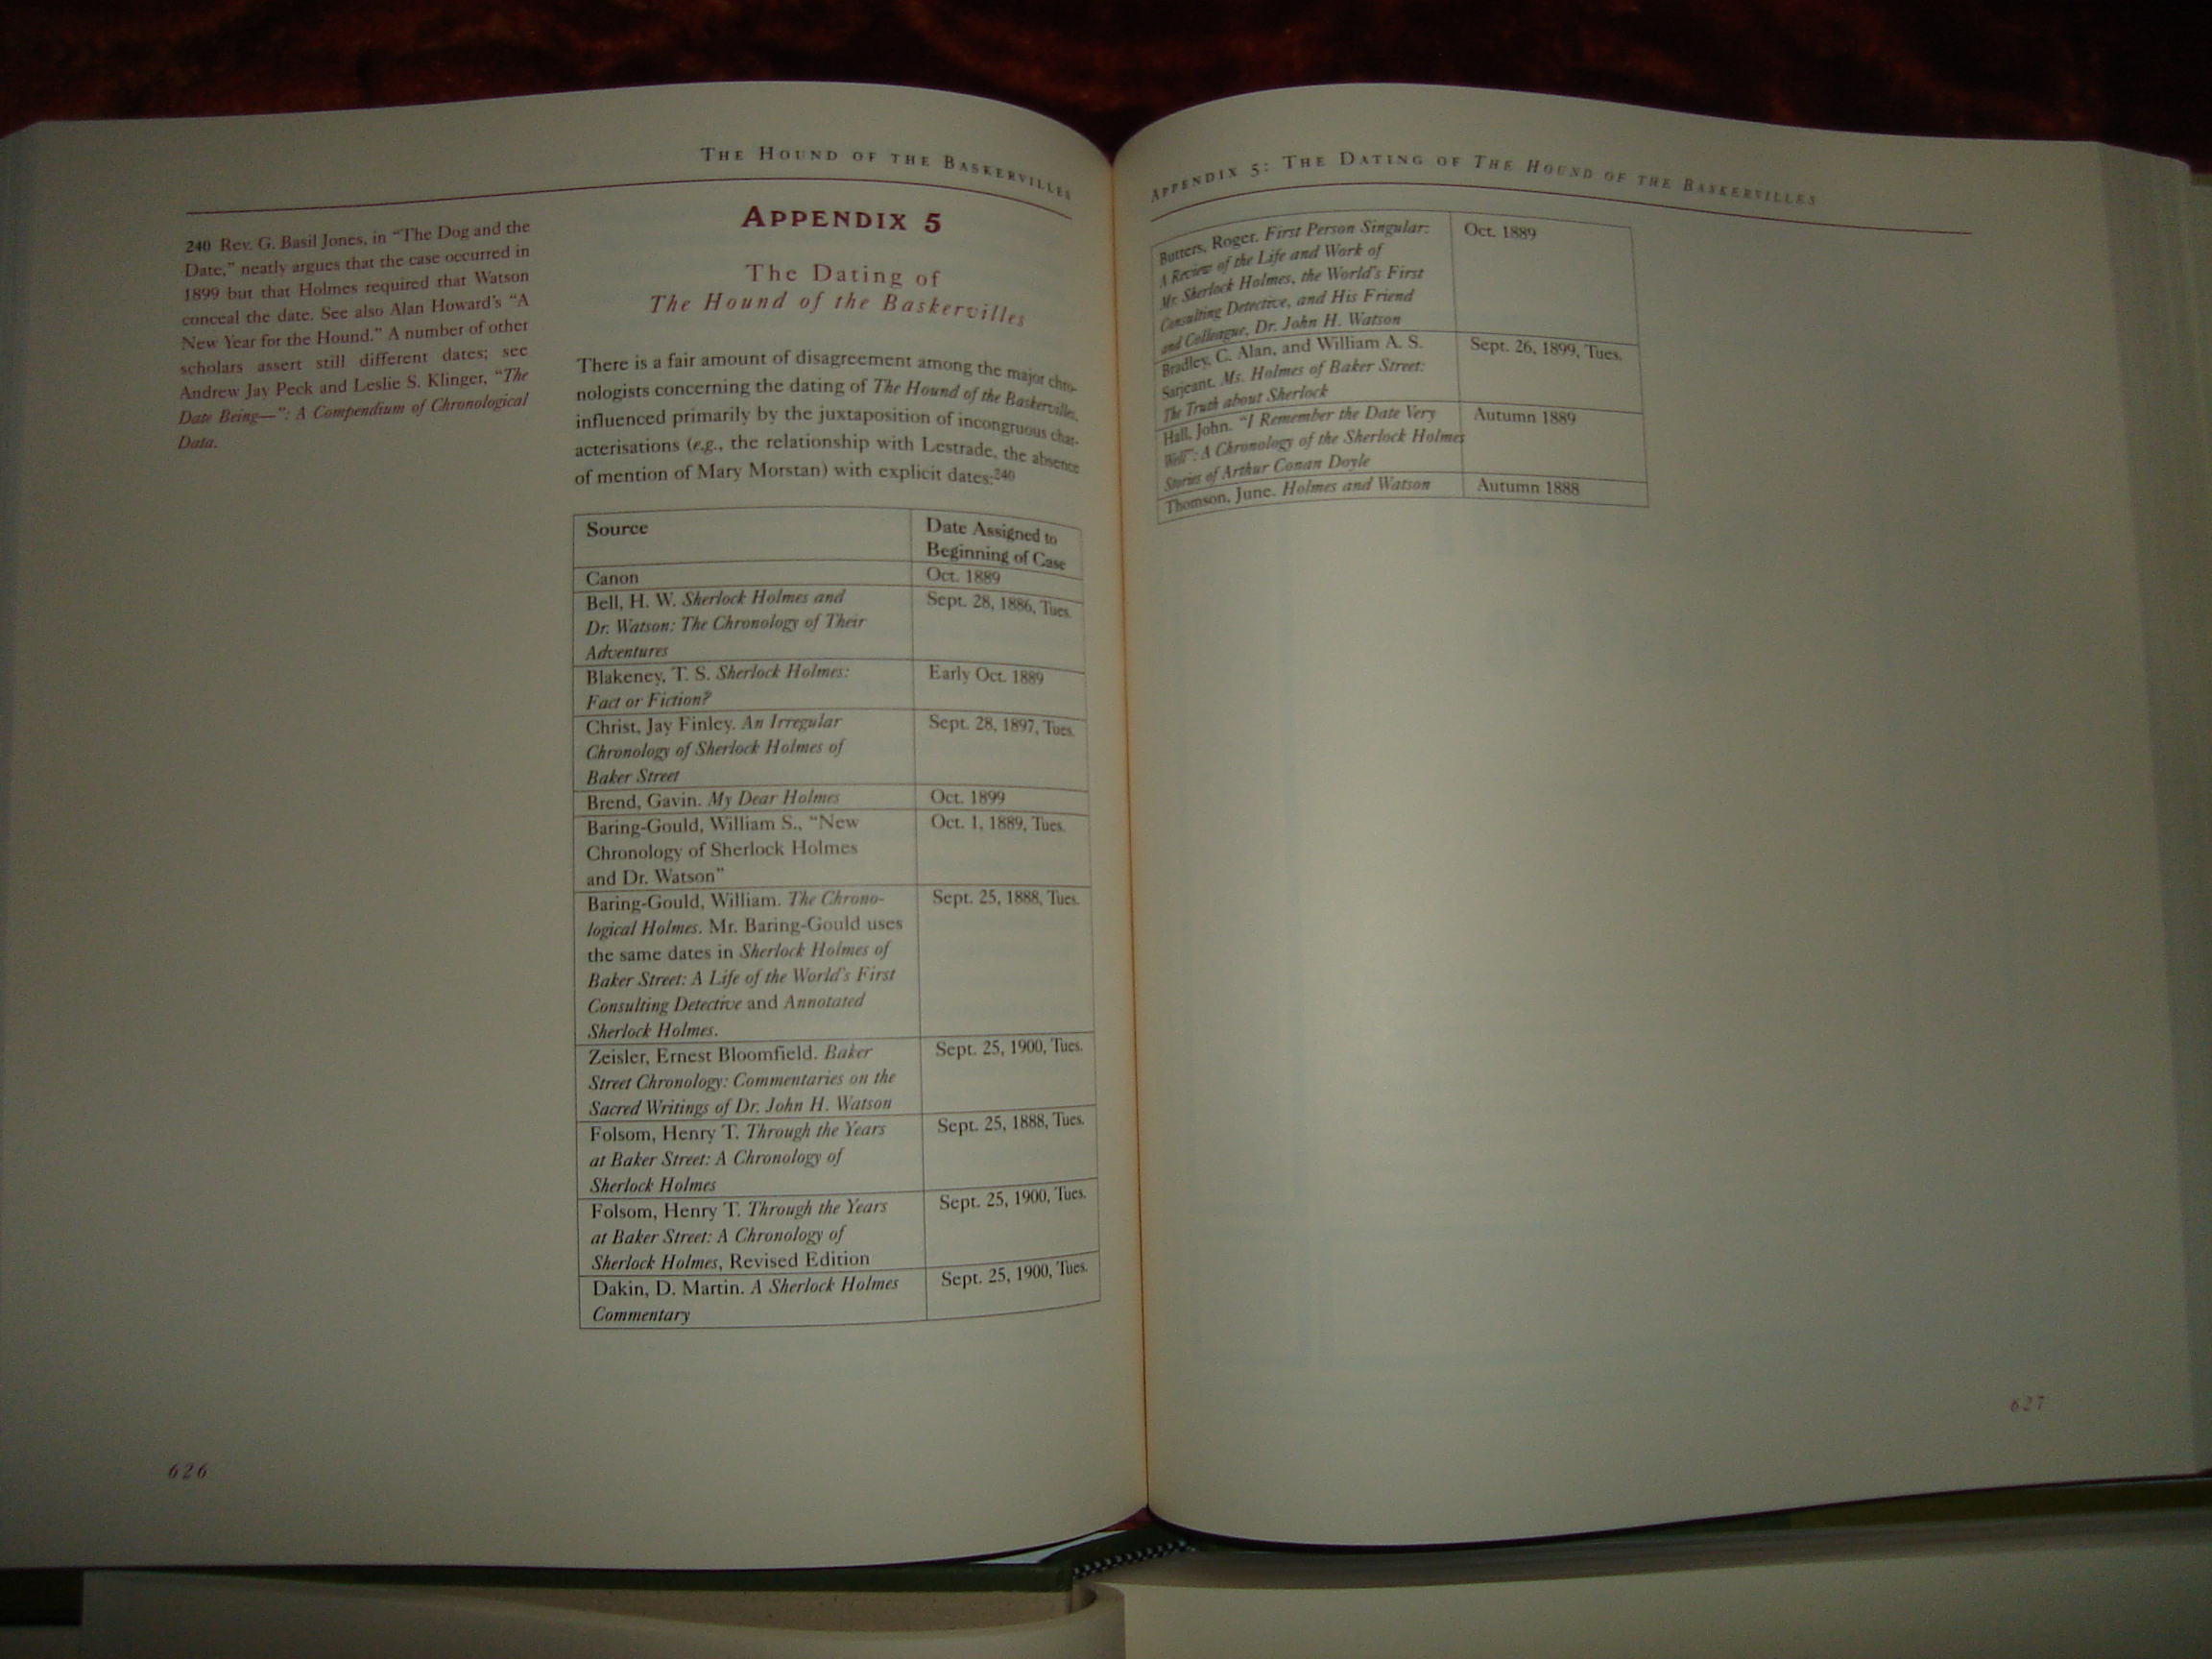 THE HOUND OF THE BASKERVILLES
240 Rev. G. Basil Jones, in “The Dog and the
Date,” neatly argues that the case occurred in
1899 but that Holmes required that Watson
conceal the date. See also Alan Howard’s “A
New Year for the Hound.” A number of other
scholars assert still different dates; see
Andrew Jay Peck and Leslie S. Klinger, “The
Date Being—”: A Compendium of Chronological
Data.
APPENDIX 5
The Dating of
The Hound of the Baskervilles
There is a fair amount of disagreement among the major chro-
nologists concerning the dating of The Hound of the Baskervilles,
influenced primarily by the juxtaposition of incongruous char-
acterisations (e.g., the relationship with Lestrade, the absence
of mention of Mary Morstan) with explicit dates:240
Source
Date Assigned to
Beginning of Case
Canon
Oct. 1889
Bell, H. W. Sherlock Holmes and
Dr. Watson: The Chronology of Their
Adventures
Sept. 28, 1886, Tues.
Blakeney, T. S. Sherlock Holmes:
Fact or Fiction?
Early Oct. 1889
Christ, Jay Finley. An Irregular
Chronology of Sherlock Holmes of
Baker Street
Sept. 28, 1897, Tues.
Brend, Gavin. My Dear Holmes
Oct. 1899
Baring-Gould, William S., “New
Chronology of Sherlock Holmes
and Dr. Watson”
Oct. 1, 1889, Tues.
Baring-Gould, William. The Chrono-
logical Holmes. Mr. Baring-Gould uses
the same dates in Sherlock Holmes of
Baker Street: A Life of the World’s First
Consulting Detective and Annotated
Sherlock Holmes.
Sept. 25, 1888, Tues.
Zeisler, Ernest Bloomfield. Baker
Street Chronology: Commentaries on the
Sacred Writings of Dr. John H. Watson
Sept. 25, 1900, Tues.
Folsom, Henry T. Through the Years
at Baker Street: A Chronology of
Sherlock Holmes
Sept. 25, 1888, Tues.
Folsom, Henry T. Through the Years
at Baker Street: A Chronology of
Sherlock Holmes, Revised Edition
Sept. 25, 1900, Tues.
Dakin, D. Martin. A Sherlock Holmes
Commentary
Sept. 25, 1900, Tues.
626
APPENDIX 5: THE DATING OF THE HOUND OF THE BASKERVILLES
Butters, Roger. First Person Singular:
A Review of the Life and Work of
Mr. Sherlock Holmes, the World’s First
Consulting Detective, and His Friend
and Colleague, Dr. John H. Watson
Oct. 1889
Bradley, C. Alan, and William A. S.
Sarjeant. Ms. Holmes of Baker Street:
The Truth about Sherlock
Sept. 26, 1899, Tues.
Hall, John. “I Remember the Date Very
Well”: A Chronology of the Sherlock Holmes
Stories of Arthur Conan Doyle
Autumn 1889
Thomson, June. Holmes and Watson
Autumn 1888
627